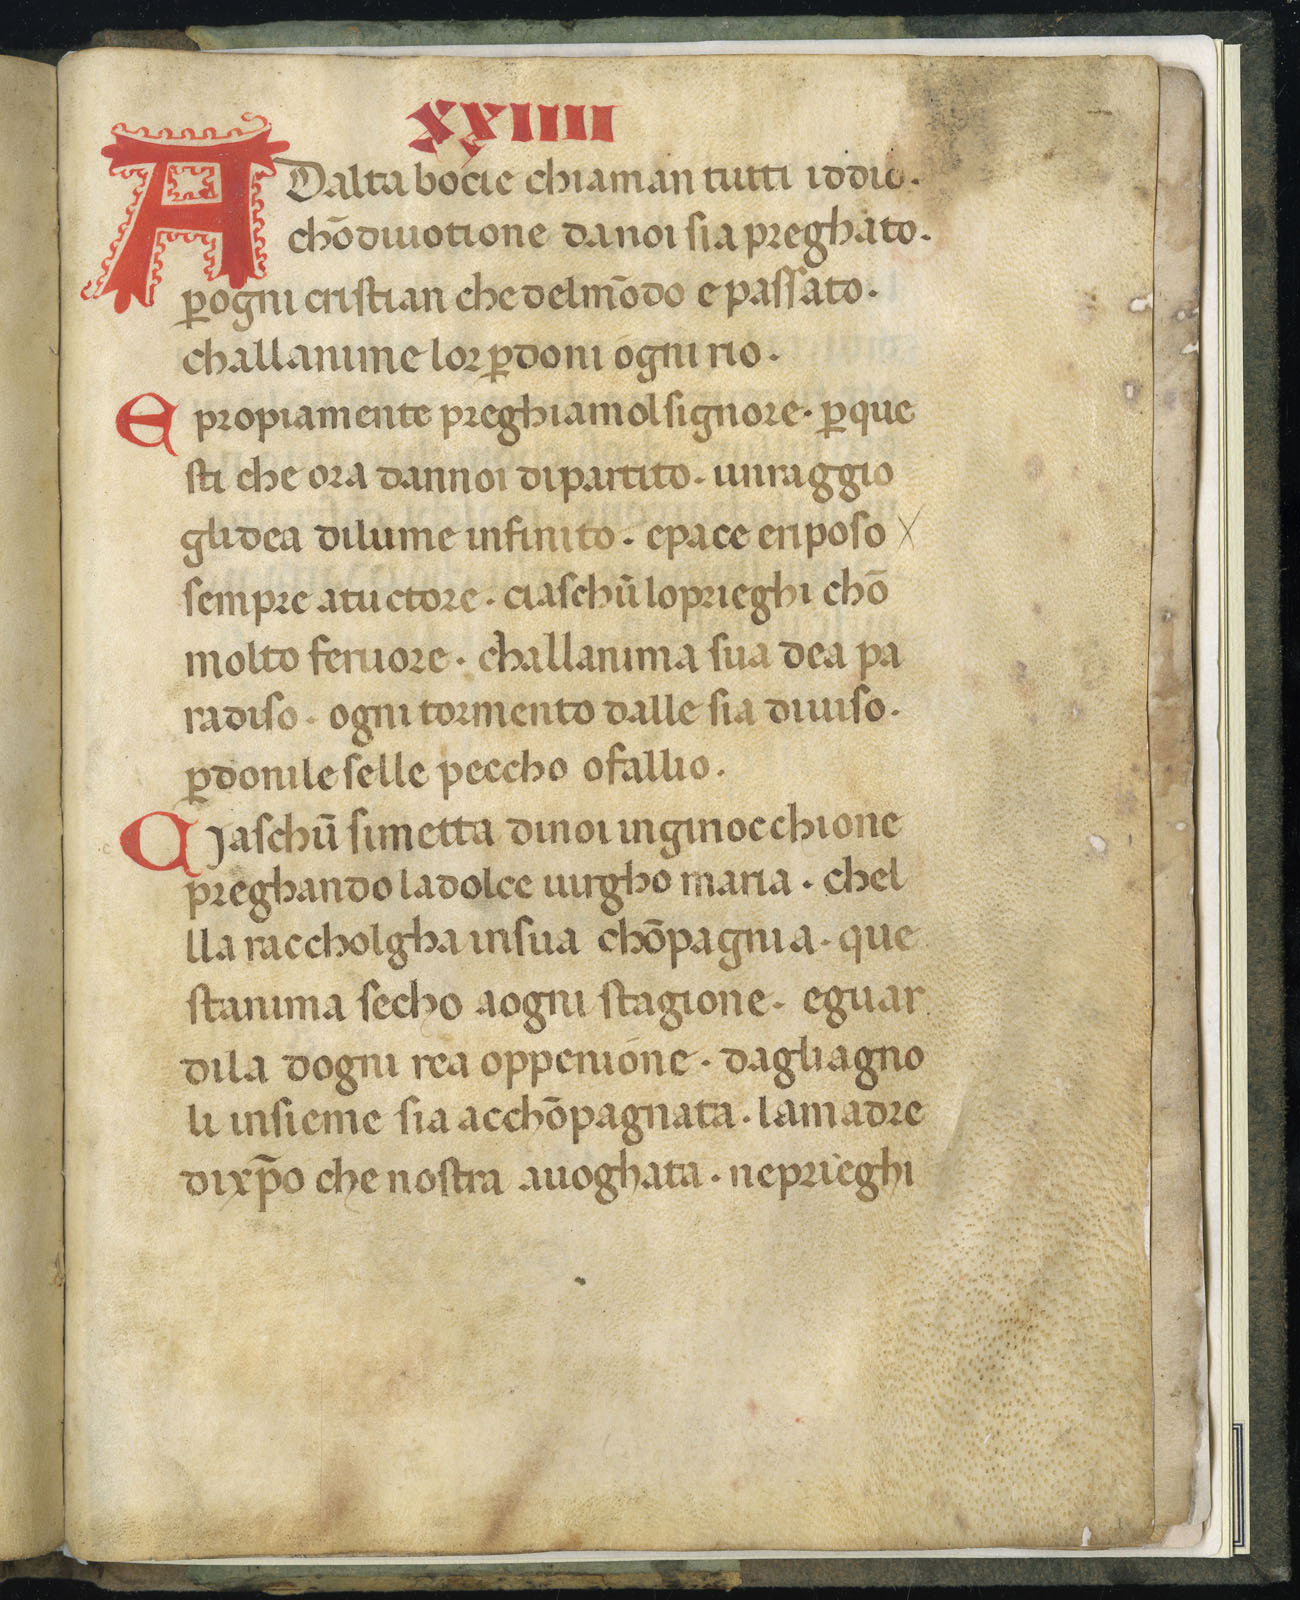 XXIIII
ADalta bocie chiaman tutti iddio.
chō diuotione danoi sia preghato.
ꝑogni cristian che delmōdo e passato.
challanime lor ꝑdoni ogni rio.
E propiamente preghiamol signore. ꝑque
sti che ora dannoi dipartito. unraggio
glidea dilume infinito. epace eriposo
sempre atuctore. ciaschū loprieghi chō
molto feruore. challanima sua dea pa
radiso. ogni tormento dalle sia diuiso.
ꝑdonile selle peccho o fallio.
CJaschū simetta dinoi inginocchione
preghando ladolce uirgho maria. chel
lla raccholgha insua chōpagnia. que
stanima secho aogni stagione. eguar
dila dogni rea oppenione. dagliagno
li insieme sia acchōpagnata. lamadre
dixp̄o che nostra auoghata. neprieghi